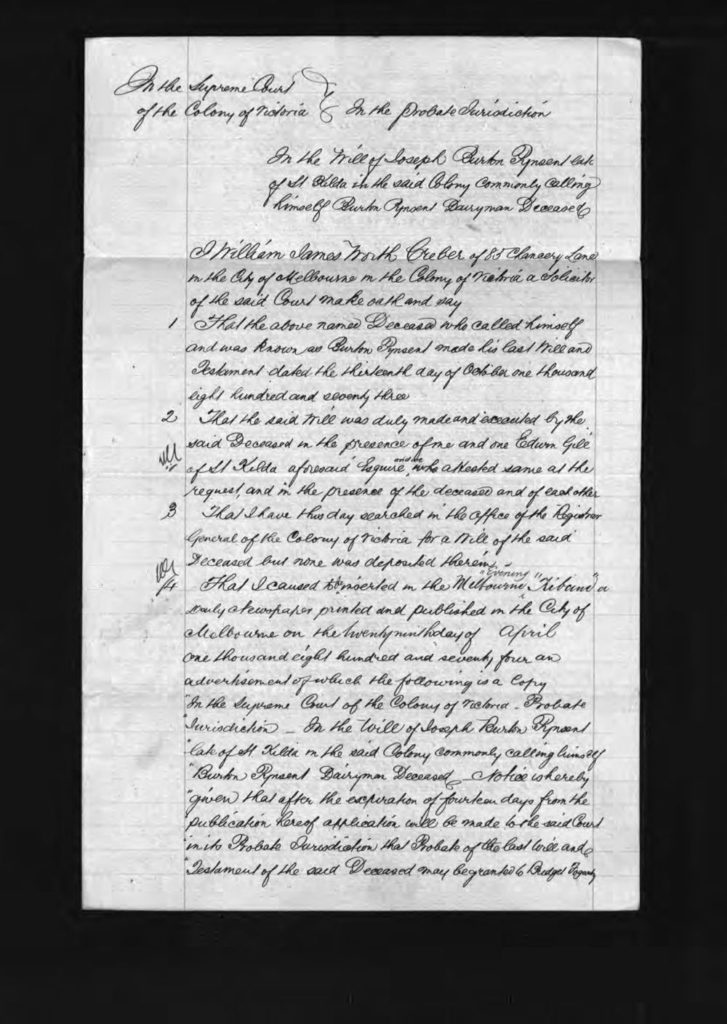 In the Supreme Court
of the Colony of Victoria } In the Probate Jurisdiction
In the Will of Joseph Burton Pynsent late
of St Kilda in the said Colony commonly calling
himself Burton Pynsent Dairyman Deceased
I William James Worth Creber of 85 Chancery Lane
in the City of Melbourne in the Colony of Victoria a Solicitor
of the said Court make oath and say
1 That the above named Deceased who called himself
and was known as Burton Pynsent made his last Will and
Testament dated the thirteenth day of October one thousand
eight hundred and seventy three
2 That the said Will was duly made and executed by the
said Deceased in the presence of me and one Edwin Gill
of St Kilda aforesaid Esquire who attested same at the
request and in the presence of the deceased and of each other
3 That I have this day searched in the Office of the Registrar
General of the Colony of Victoria for a Will of the said
Deceased but none was deposited therein
"Evening
4 That I caused to be inserted in the Melbourne Tribune" a
daily Newspaper printed and published in the City of
Melbourne on the twenty ninth day of April
one thousand eight hundred and seventy four an
advertisement of which the following is a Copy
"In the Supreme Court of the Colony of Victoria – Probate
"Jurisdiction – In the Will of Joseph Burton Pynsent
"late of St Kilda in the said Colony commonly calling himself
"Burton Pynsent Dairyman Deceased – Notice is hereby
"given that after the expiration of fourteen days from the
"publication hereof application will be made to the said Court
"in its Probate Jurisdiction that Probate of the last Will and
"Testament of the said Deceased may be granted to Bridget Fogarty